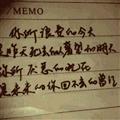 MEMO
你所浪费的今天
是昨天死去的人奢望的明天
你所厌恶的现在
是未来的你回不去的曾经